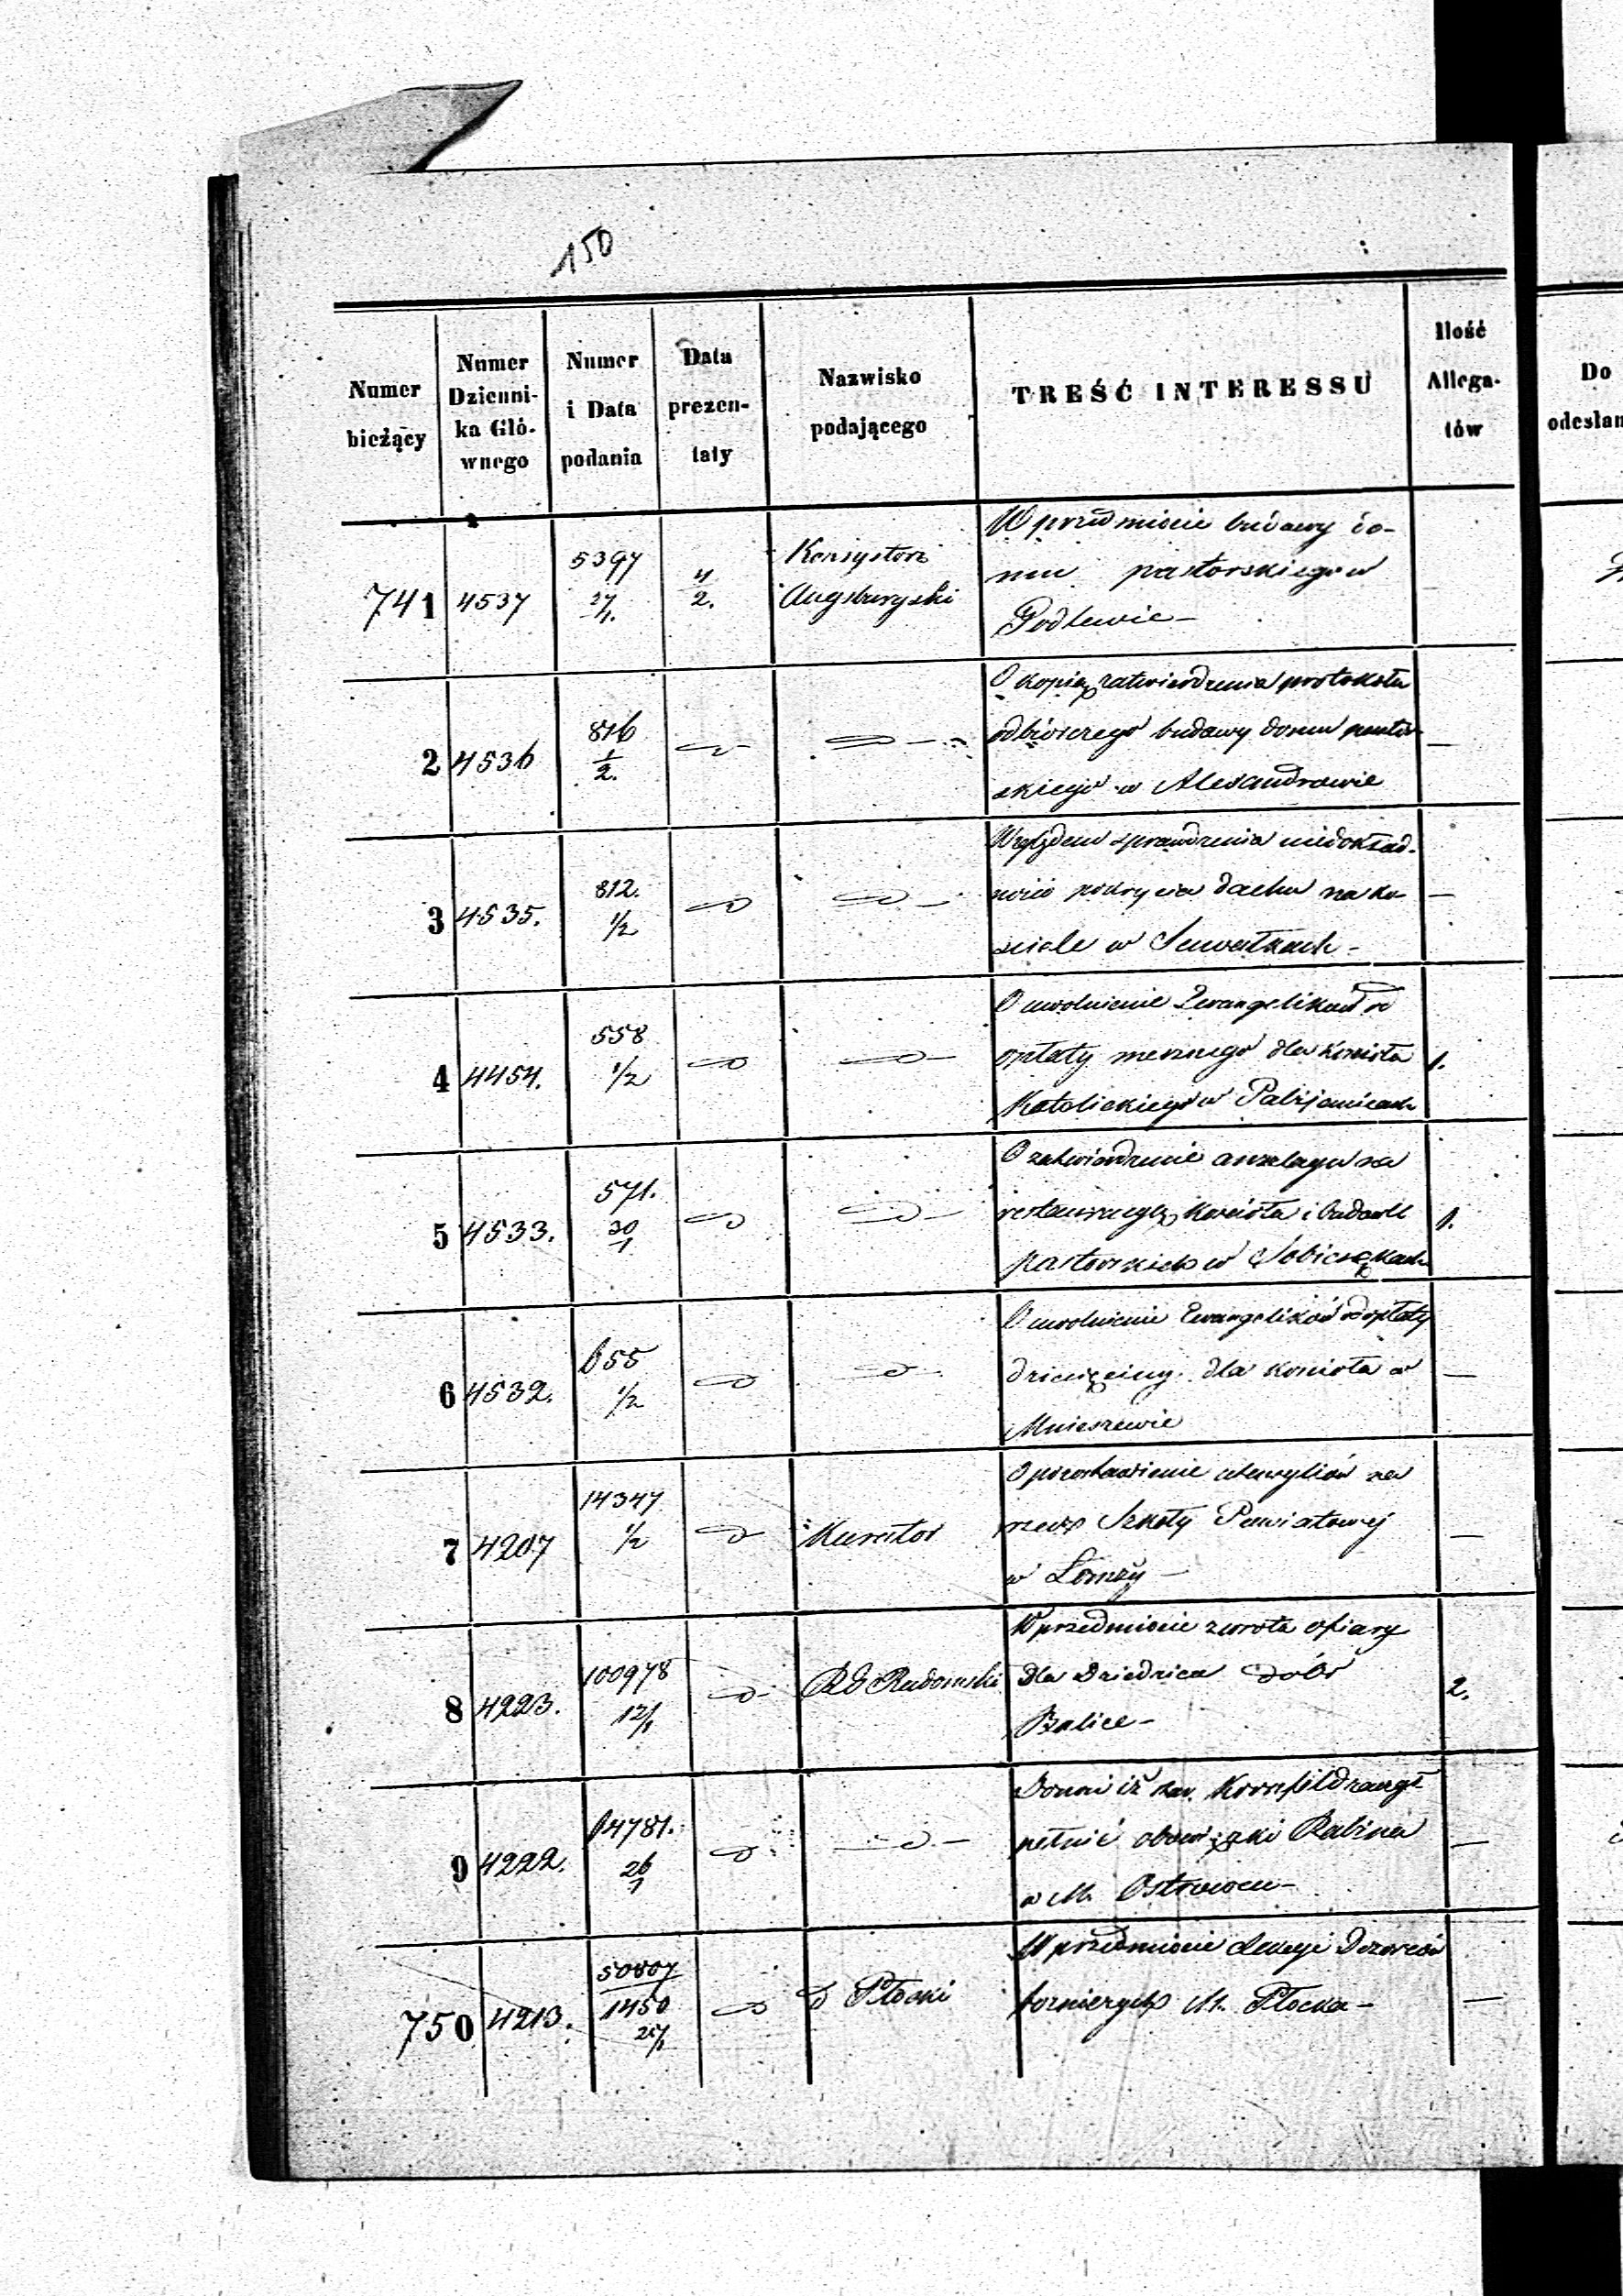 150
Numer bieżący
Numer Dzienni- ka Głó- wnego
Numer i Data podania
Data prezen- taty
Nazwisko podającego
TREŚĆ INTERESSU
Ilość Allega- tów
Do odesłan
741 4537 5397 27/1. 4/2. Konsystorz Augsburgski
W przedmiocie budowy do-
mu pastorskiego w
Godlewie –
2 4536 816 1/2.
O kopią zatwierdzenia protokołu
odbiorczego budowy domu pastor-
skiego w Alexandrowie –
3 4535. 812. 1/2
Względem sprawdzenia niedokład-
ności pokrycia dachu na ko-
sciele w Suwałkach – –
4 4454. 558 1/2
O uwolnienie Ewangelików od
opłaty mesznego dla kościoła
Katolickiego w Pabijanicach 1.
5 4533. 571. 30/1
O zatwierdzenie anszlagu na
restauracyą kościoła i budowli
pastorskich w Sobiesękach 1.
6 4532. 655 1/2
O uwolnienie Ewangelików od opłaty
dziesięciny dla kościoła w
Mniszewie –
7 4207 14347 1/2 Kurator
O pozostawienie
rzecz Szkoły Powiatowej
w Łomży – –
8 4223. 100978 12/1 RG Radomski
W przedmiocie zwrotu ofiary
dla Dziedzica dóbr
Balice – 2.
9 4222. 64781. 26/1
Donosi iż
pełnić obowiązki Rabina
w M. Ostrowcu – –
750 4213. 50807 1450 25/1 D Płocki
W przedmiocie Dozorców
M. Płocka – –